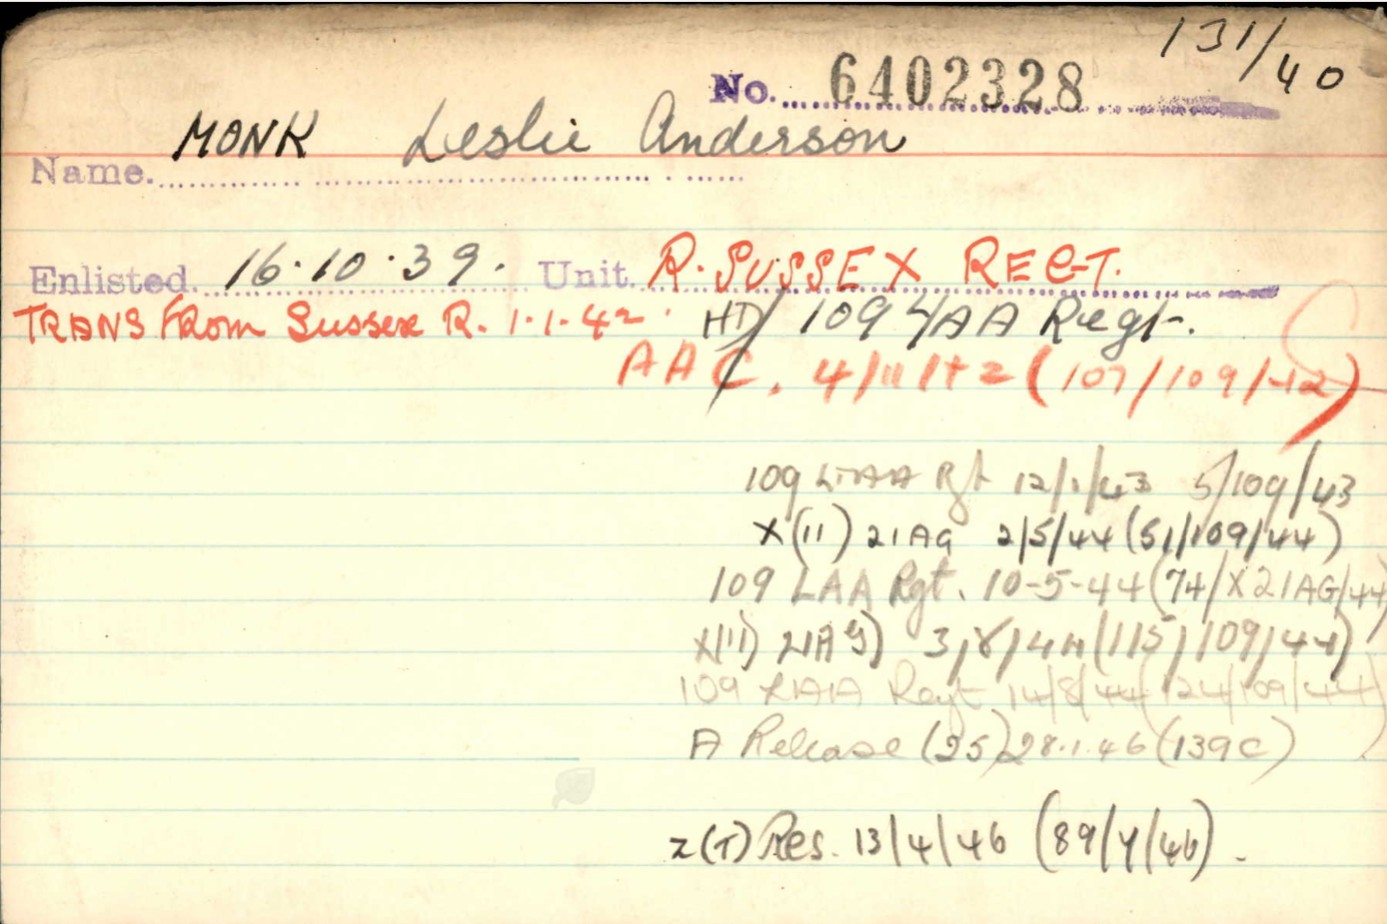 131/40
No. 6402328
Name. MONK Leslie Anderson
Enlisted. 16.10.39. Unit. R. SUSSEX REGT.
TRANS FROM Sussex R. 1.1.42. HD/ 109 L/AA Regt.
AAC. 4/11/42 (107/109/42)
109 LTAA Rgt 12/1/43 5/109/43
X(11) 21AG 2/5/44 (51/109/44)
109 LAA Rgt. 10-5-44 (74/X21AG/44)
X(11) 21AG) 3/8/44 (115/109/44)
109 LAA Regt 14/8/44 (124/109/44)
A Release (25) 28.1.46 (139C)
Z(T) Res. 13/4/46 (89/Y/46).